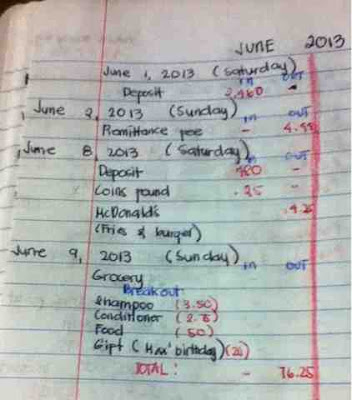 JUNE 2013
June 1, 2013 (Saturday) in out
Deposit 2,960 -
June 2, 2013 (Sunday) in out
Remittance fee - 4.99
June 8, 2013 (Saturday) in out
Deposit 780 -
Coins found .25 -
McDonald's 4.25
(Fries & burger)
June 9, 2013 (Sunday) in out
Grocery
Breakout
Shampoo (3.50)
Conditioner
Food (50)
Gift (Mom' birthday)
TOTAL! - 76.25